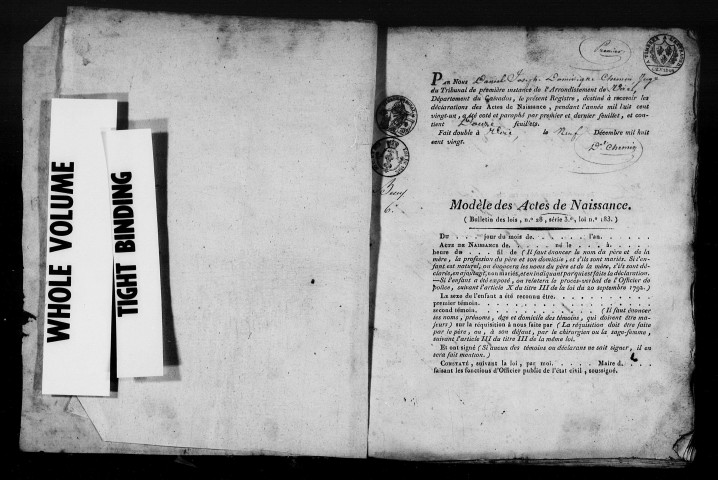 WHOLE VOLUME
TIGHT BINDING
Premier
PAR NOUS Daniel Joseph Dominique Chemin Juge
du Tribunal de première instance de l'Arrondissement de Vire,
Département du Calvados, le présent Registre, destiné à recevoir les
déclarations des Actes de Naissance, pendant l'année mil huit cent
vingt-un, a été coté et paraphé par premier et dernier feuillet, et con-
tient Douze feuillets.
Fait double à Vire, le Neuf Décembre mil huit
cent vingt.
Dl Chemin
Modèle des Actes de Naissance.
( Bulletin des lois, n.º 28, série 3.e, loi n.º 183. )
DU . . . jour du mois de . . . . . . l'an . . . . . .
ACTE DE NAISSANCE de . . . . . né le . . . . à . . .
heure du . . . fil de ( Il faut énoncer le nom du père et de la
mère, la profession du père et son domicile, et s'ils sont mariés. Si l'en-
fant est naturel, on énoncera les noms du père et de la mère, s'ils sont dé-
clarés, en ajoutant, non mariés, et en indiquant par qui est faite la déclaration.
—Si l'enfant a été exposé, on relatera le procès-verbal de l'Officier de
police, suivant l'article X du titre III de la loi du 20 septembre 1792.)
Le sexe de l'enfant a été reconnu être. . . . . . .
premier témoin. . . . . . .
second témoin. . . . . . . ( Il faut énoncer
les noms, prénoms, âge et domicile des témoins, qui doivent être ma-
jeurs) sur la réquisition à nous faite par ( La réquisition doit être faite
par le père, ou, à son défaut, par le chirurgien ou la sage-femme,
suivant l'article III du titre III de la même loi.
Et ont signé ( Si aucun des témoins ou déclarans ne sait signer, il en
sera fait mention. )
CONSTATÉ, suivant la loi, par moi. . . . . . Maire d. . . .
faisant les fonctions d'Officier public de l'état civil, soussigné.